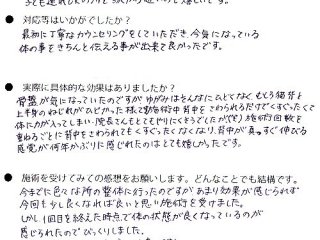 ● 対応等はいかがでしたか？
最初に丁寧なカウンセリングをしていただき、今気になっている
体の事をきちんと伝える事が出来て良かったです。
● 実際に具体的な効果はありましたか？
骨盤が気になっていたのですが ゆがみはそんなにひどくなく むしろ猫背と
上半身のねじれがひどかった様で 施術中 背中をさわられるだけでくすぐったくて
体に力が入ってしまい、院長さんもとてもやりにくそうでしたが 施術回数を
重ねるごとに 背中をさわられてもくすぐったくなくなり、背中が真っすぐ伸びる
感覚が何年かぶりに感じれたのはとても嬉しかったです。
● 施術を受けてみての感想をお願いします。どんなことでも結構です。
今までに色々な所の整体に行ったのですが あまり効果が感じられず
今回も少し良くなれば良いと思い 施術を受けました。
しかし 1回目を終えた時点で体の状態が良くなっているのが
感じられたので びっくりしました。